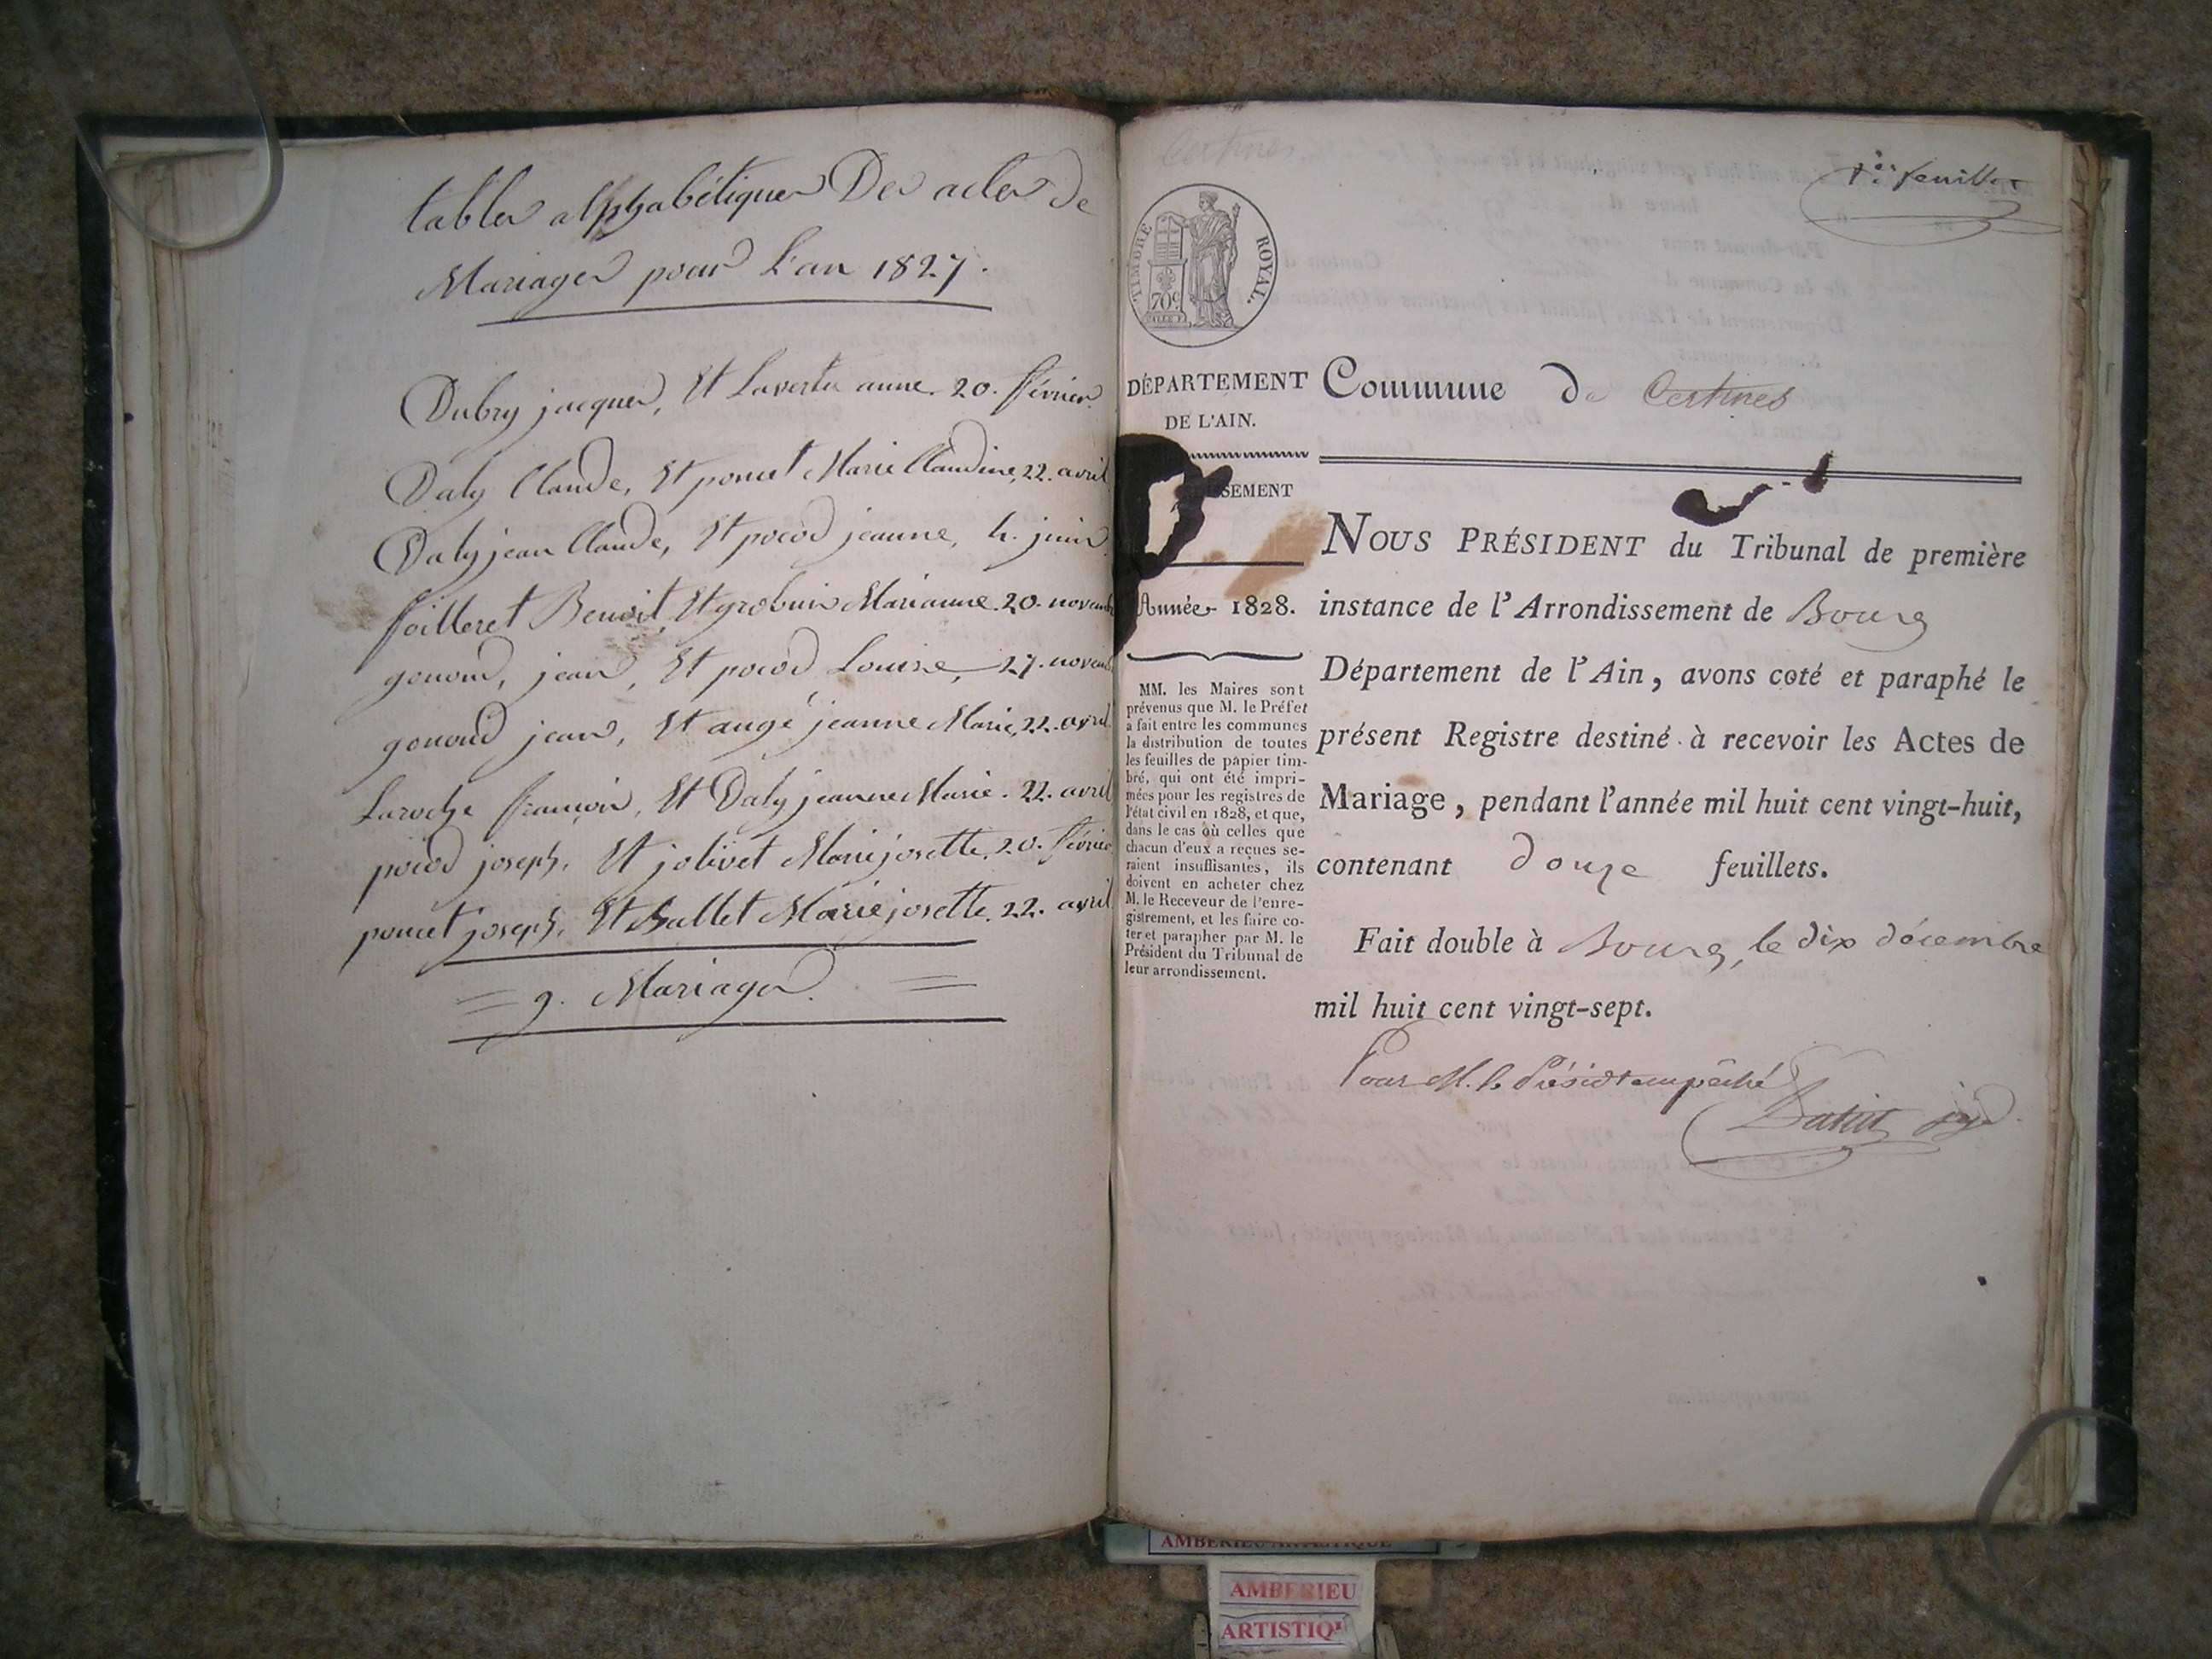 tables alphabétiques Des actes de
Mariages pour L'an 1827.
Dubry jacques, Et Laverta anne. 20. février
Daly Claude, Et poncet Marie Claudine, 22. avril
Daly jean Claude, Et pocod jeanne, 4. juin
foilleret Benoit, Et grobuis Marianne. 20. novemb
gonond, jean, Et pocod Louise, 27. novemb
gonond jean, Et augé jeanne Marie, 22. avril
Laroche françois, Et Daly jeanne Marie. 22. avril
pocod joseph, Et jolivet Marie josette. 20. février
poncet joseph, Et Ballet Marie josette. 22. avril
= 9. Mariages. =
Certines
1er feuillet
TIMBRE ROYAL.
70c
DÉPARTEMENT
DE L'AIN.
SEMENT
Année 1828.
MM. les Maires sont
prévenus que M. le Préfet
a fait entre les communes
la distribution de toutes
les feuilles de papier tim-
bré, qui ont été impri-
mées pour les registres de
l'état civil en 1828, et que,
dans le cas où celles que
chacun d'eux a reçues se-
raient insuffisantes, ils
doivent en acheter chez
M. le Receveur de l'enre-
gistrement, et les faire co-
ter et parapher par M. le
Président du Tribunal de
leur arrondissement.
Commune de Certines
NOUS PRÉSIDENT du Tribunal de première
instance de l'Arrondissement de Bourg
Département de l'Ain, avons coté et paraphé le
présent Registre destiné à recevoir les Actes de
Mariage, pendant l'année mil huit cent vingt-huit,
contenant douze feuillets.
Fait double à Bourg, le dix décembre
mil huit cent vingt-sept.
Pour M. le Présidt empêché
AMBERIEU ARTISTIQUE
AMBERIEU
ARTISTIQ